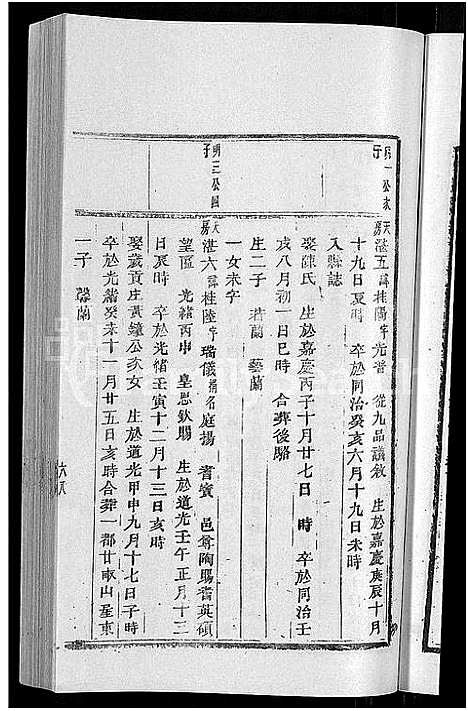 明一公次子
天房湛五諱桂陽字光晉 從九品議敘 生於嘉慶庚辰十月
十九日辰時 卒於同治癸亥六月十九日未時
入縣誌
娶陳氏 生於嘉慶丙子十月廿七日 時 卒於同治壬
戌八月初一日巳時 合葬後駱
生二子 若蘭 藝蘭
一女未字
明三公四子
天房湛六諱桂陸字瑞儀 名庭揚 耆賓 邑尊陶賜耆英碩
望匾 光緒丙申 皇恩欽賜 生於道光壬午正月十三
日辰時 卒於光緒壬寅十二月十三日亥時
娶歲貢庄黃鐘公次女 生於道光甲申九月十七日子時
卒於光緒癸未十一月廿五日亥時合葬一都廿畝山星東
一子 馨蘭
六八